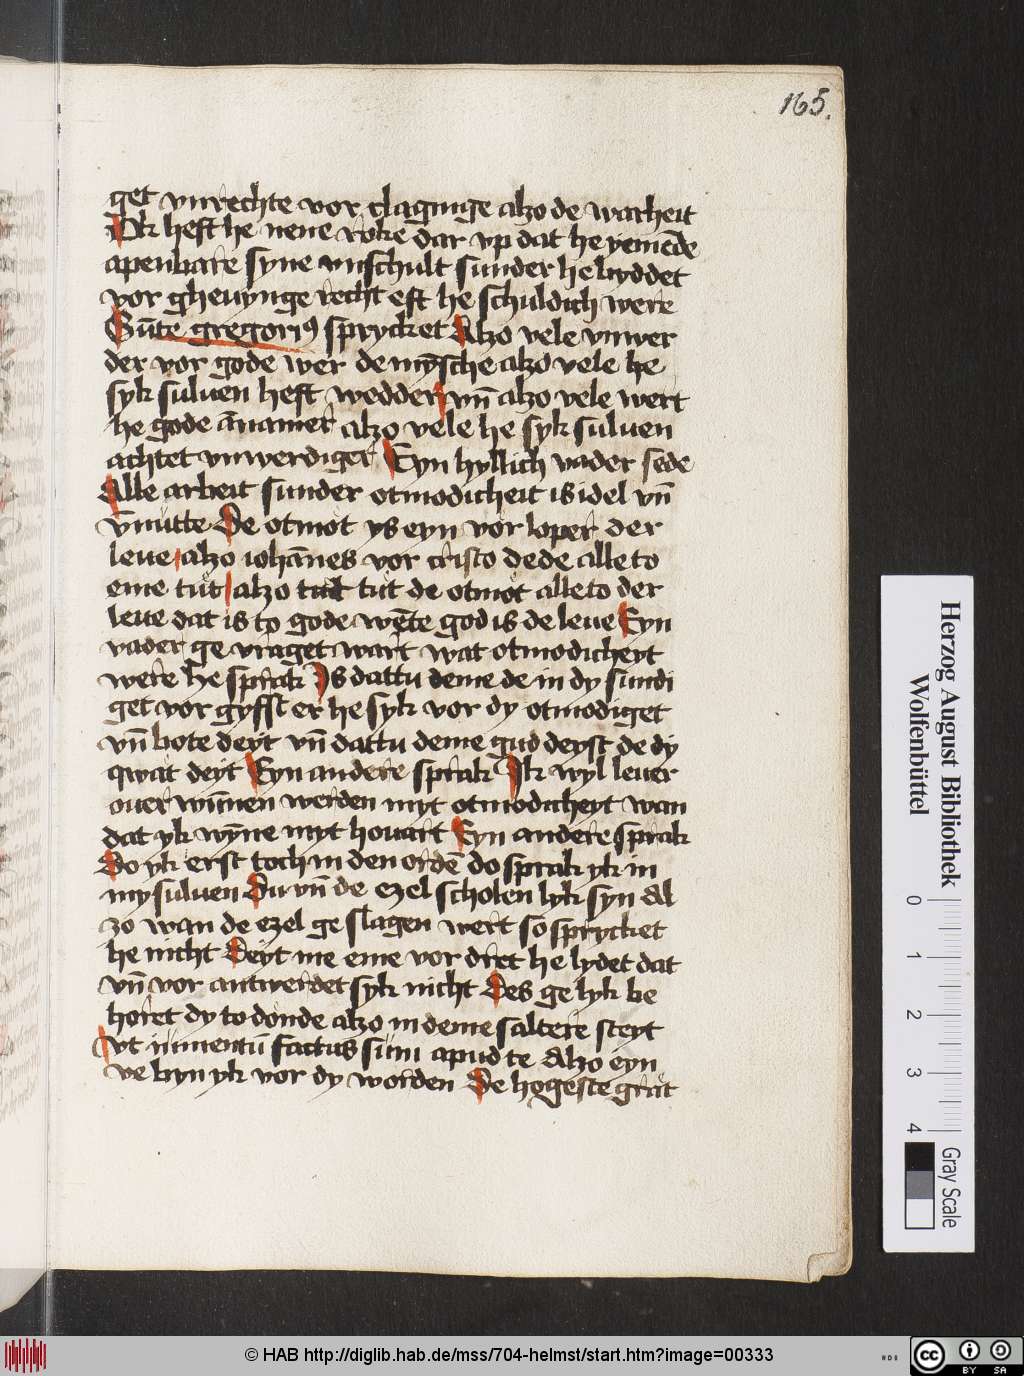 165.
get vnrechte vor claginge alzo de warheit
Ok heft he nene roke dar vp dat he yemēde
apenbare syne vnschult sunder he byddet
vor gheuynge recht eft he schuldich were
Sūte gregoriꝰ sprycket Alzo vele vnwer
der vor gode wer de mȳsche alzo vele he
syk suluen heft wedder vn̄ alzo vele wert
he gode ānamer alzo vele he syk suluen
achtet vnwerdiger Eyn hyllich vader sede
Alle arbeit sunder otmodicheit is idel vn̄
vnnutte De otmot ys eyn vor loper der
leue alzo iohānes vor cristo dede alle to
eme tut alzo tut de otmot alle to der
leue dat is to gode wēte god is de leue Eyn
vader ge vraget wart wat otmodicheyt
were he sprak Is dattu deme de in dy sundi
get vor gyffst er he syk vor dy otmodiget
vn̄ bote deyt vn̄ dattu deme gud deyst de dy
qwat deyt Eyn andere sprak Ik wyl leuer
ouer wūnen werden myt otmodicheyt wan
dat yk wȳne myt houart Eyn andere sprak
Do yk erst toch in den ordē do sprak yk in
my suluen Du vn̄ de ezel scholen lyk syn Al
zo wan de ezel ge slagen wert so sprycket
he nicht Deyt me eme vor dret he lydet dat
vn̄ vor antwerdet syk nicht Des ge lyk be
horet dy to donde alzo in deme saltere steyt
Vt iumentū factus sum apud te Alzo eyn
ve byn yk vor dy worden De hogeste grat
Herzog August Bibliothek
Wolfenbüttel
0 1 2 3 4
Gray Scale
© HAB http://diglib.hab.de/mss/704-helmst/start.htm?image=00333
HAB
cc BY SA